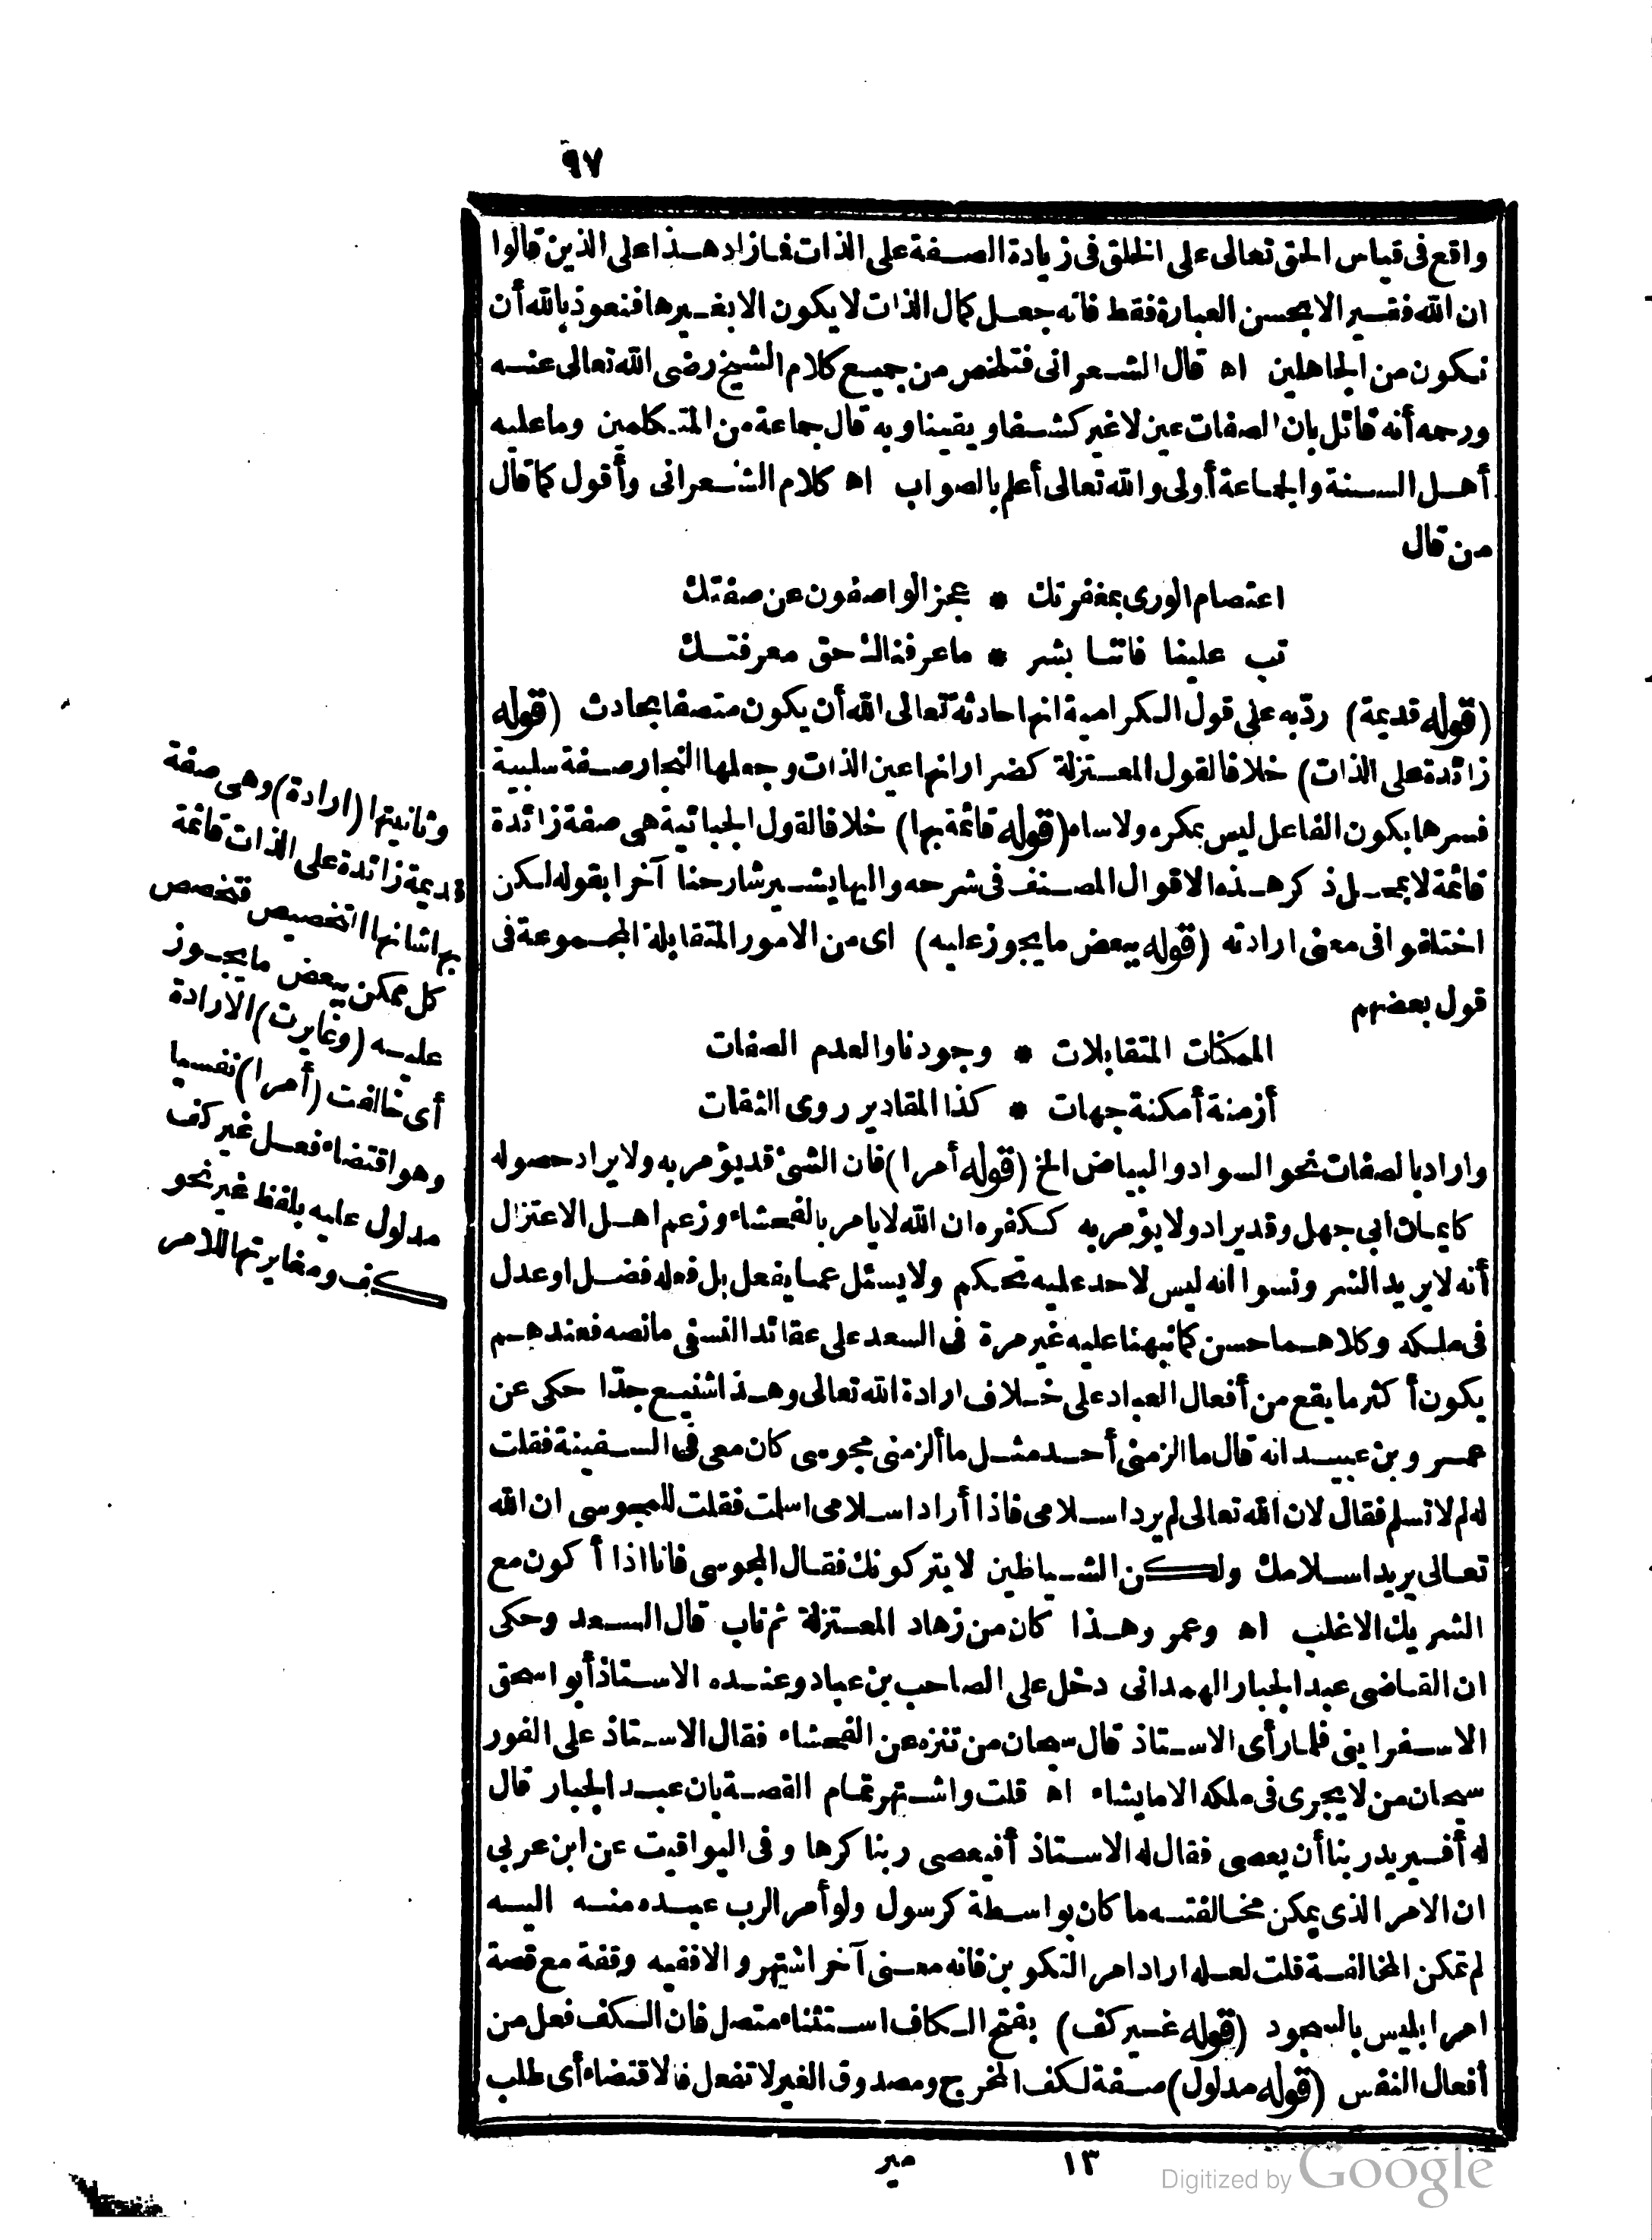 ٩٧
واقع فى قياس الحق تعالى على الخلق فى زيادة الصفة على الذات فما زاد هذا على الذين قالوا
ان الله فقير الا بحسن العبارة فقط فانه جعل كمال الذات لا يكون الا بغيرها فنعوذ بالله أن
نكون من الجاهلين اه قال الشعرانى فتلخص من جميع كلام الشيخ رضى الله تعالى عنه
ورحمه أنه قائل بان الصفات عين لا غير كشفا ويقينا وبه قال جماعة من المتكلمين وما عليه
أهل السنة والجماعة أولى والله تعالى أعلم بالصواب اه كلام الشعرانى وأقول كما قال
من قال
اعتصام الورى بمغفرتك * عجز الواصفون عن صفتك
تب علينا فاننا بشر * ما عرفناك حق معرفتك
(قوله قديمة) ردّ به على قول الكرامية انها حادثة تعالى الله أن يكون متصفا بحادث (قوله
زائدة على الذات) خلافا لقول المعتزلة كضرار انها عين الذات وجعلها النجار صفة سلبية
فسرها بكون الفاعل ليس بمكره ولا ساه (قوله قائمة بها) خلافا لقول الجبائية هى صفة زائدة
قائمة لا بمحل ذكر هذه الاقوال المصنف فى شرحه واليها يشير شارحنا آخرا بقوله لكن
اختلفوا فى معنى ارادته (قوله ببعض ما يجوز عليه) اى من الامور المتقابلة المجموعة فى
قول بعضهم
الممكنات المتقابلات * وجودنا والعدم الصفات
أزمنة أمكنة جهات * كذا المقادير روى الثقات
واراد بالصفات نحو السواد والبياض الخ (قوله أمرا) فان الشئ قد يؤمر به ولا يراد حصوله
كايمان ابى جهل وقد يراد ولا يؤمر به ككفره ان الله لا يامر بالفحشاء وزعم اهل الاعتزال
أنه لا يريد الشر ونسوا انه ليس لاحد عليه تحكم ولا يسئل عما يفعل بل فعله فضل او عدل
فى ملكه وكلاهما حسن كما نبهنا عليه غير مرة فى السعد على عقائد النسفى ما نصه فعندهم
يكون أكثر ما يقع من أفعال العباد على خلاف ارادة الله تعالى وهذا شنيع جدّا حكى عن
عمرو بن عبيد انه قال ما الزمنى أحد مثل ما ألزمنى مجوسى كان معى فى السفينة فقلت
له لم لا تسلم فقال لان الله تعالى لم يرد اسلامى فاذا أراد اسلامى اسلمت فقلت للمجوسى ان الله
تعالى يريد اسلامك ولكن الشياطين لا يتركونك فقال المجوسى فانا اذا أكون مع
الشريك الاغلب اه وعمرو هذا كان من زهاد المعتزلة ثم تاب قال السعد وحكى
ان القاضى عبد الجبار الهمدانى دخل على الصاحب بن عباد وعنده الاستاذ أبو اسحق
الاسفراينى فلما رأى الاستاذ قال سبحان من تنزه عن الفحشاء فقال الاستاذ على الفور
سبحان من لا يجرى فى ملكه الا ما يشاء اه قلت واشتهر تمام القصة بان عبد الجبار قال
له أفيريد ربنا أن يعصى فقال له الاستاذ أفيعصى ربنا كرها وفى اليواقيت عن ابن عربى
ان الامر الذى يمكن مخالفته ما كان بواسطة كرسول ولو أمر الرب عبده منه اليه
لم تمكن المخالفة قلت لعله اراد امر التكوين فانه معنى آخر اشتهر والا ففيه وقفة مع قصة
امر ابليس بالسجود (قوله غير كف) بفتح الكاف استثناء متصل فان الكف فعل من
أفعال النفس (قوله مدلول) صفة لكف المخرج ومصدوق الغير لا تفعل فالاقتضاء أى طلب
وثانيتها (ارادة) وهى صفة
قديمة زائدة على الذات قائمة
بها شانها التخصيص فتخصص
كل ممكن ببعض ما يجوز
عليه (وغايرت) الارادة
أى خالفت (أمرا) نفسيا
وهو اقتضاء فعل غير كف
مدلول عليه بلفظ غير نحو
كف ومغايرتها للامر
١٣ مير
Digitized by Google